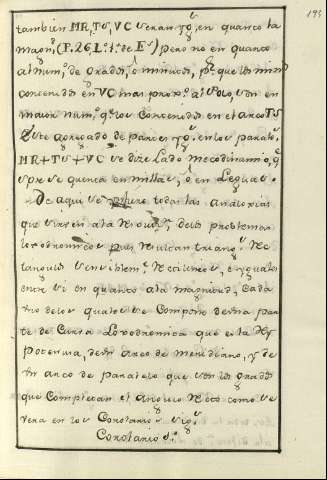 tambien MR, TS, VC seran yg.s en quanto la
magn.d (P. 26, L. 1.º de E.s) pero no en quanto
al num.º de grados, ô minutos, p.r que los min.s
contenidos en VC mas prox.º al Polo, son en
maior num.º q.e los contenidos en el arco TS
Este agregado de partes yg.s en los paralel.s
MR+TS+VC se dice Lado Mecodinamico, q.e
spre se quenta en millas, ô en Leguas.
De aqui se todas las Analogias
que sirven ala de los problemas
Loxodromicos pues resultan triang.s
tangulos sensiblem.te Rectilineos, e yguales
entre si en quanto ala magnitud, Cada
Vno delos quales se Compone de vna par
te de Curva Loxodromica que es la Hy
potenusa, de vn arco de meridiano, y de
vn arco de paralelo que son los grados
que Completan el Angulo Recto como se
vera en los Corolarios sig.s
Corolario 1.º